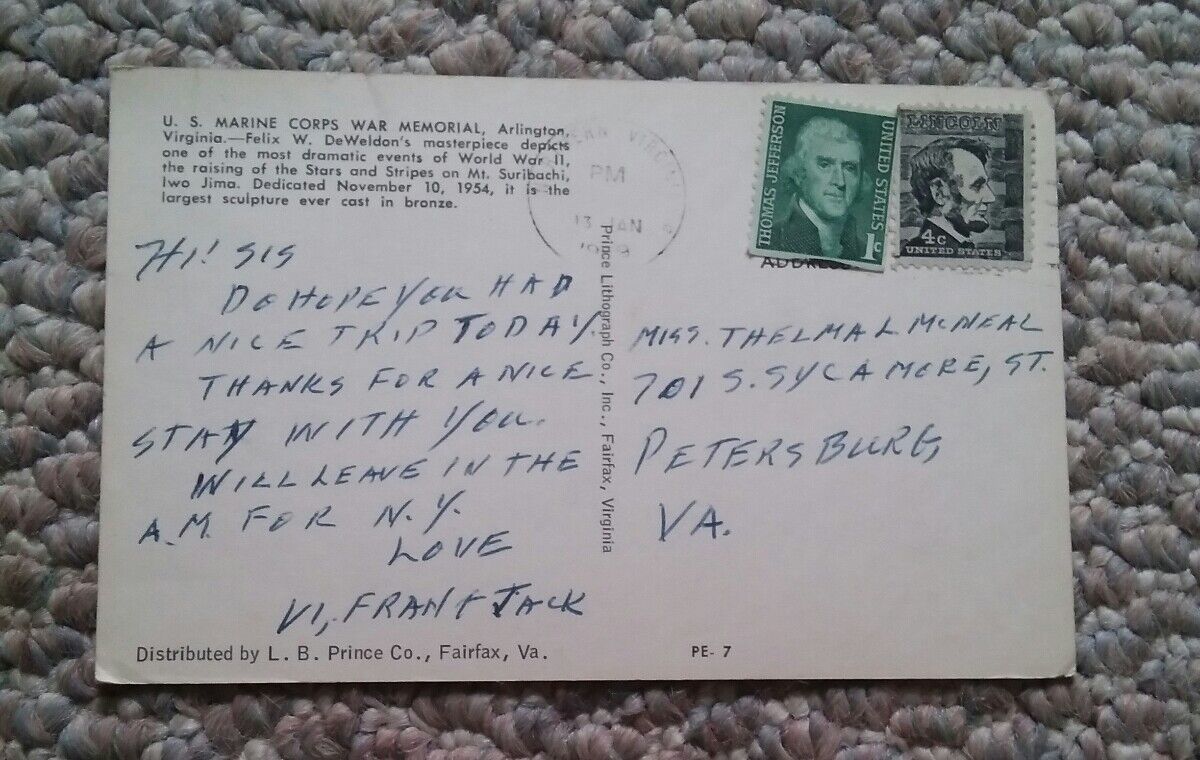 U. S. MARINE CORPS WAR MEMORIAL, Arlington,
Virginia.—Felix W. DeWeldon's masterpiece depicts
one of the most dramatic events of World War II,
the raising of the Stars and Stripes on Mt. Suribachi,
Iwo Jima. Dedicated November 10, 1954, it is the
largest sculpture ever cast in bronze.
HI! SIS
DO HOPE YOU HAD
A NICE TRIP TODAY.
THANKS FOR A NICE
STAY WITH YOU.
WILL LEAVE IN THE
A.M. FOR N.Y.
LOVE
VI, FRAN & JACK
Distributed by L. B. Prince Co., Fairfax, Va.
Prince Lithograph Co., Inc., Fairfax, Virginia
PM
13 JAN
THOMAS JEFFERSON
UNITED STATES
1c
LINCOLN
4c
UNITED STATES
ADDRESS
MISS. THELMA L MCNEAL
701 S. SYCAMORE, ST.
PETERSBURG,
VA.
PE- 7